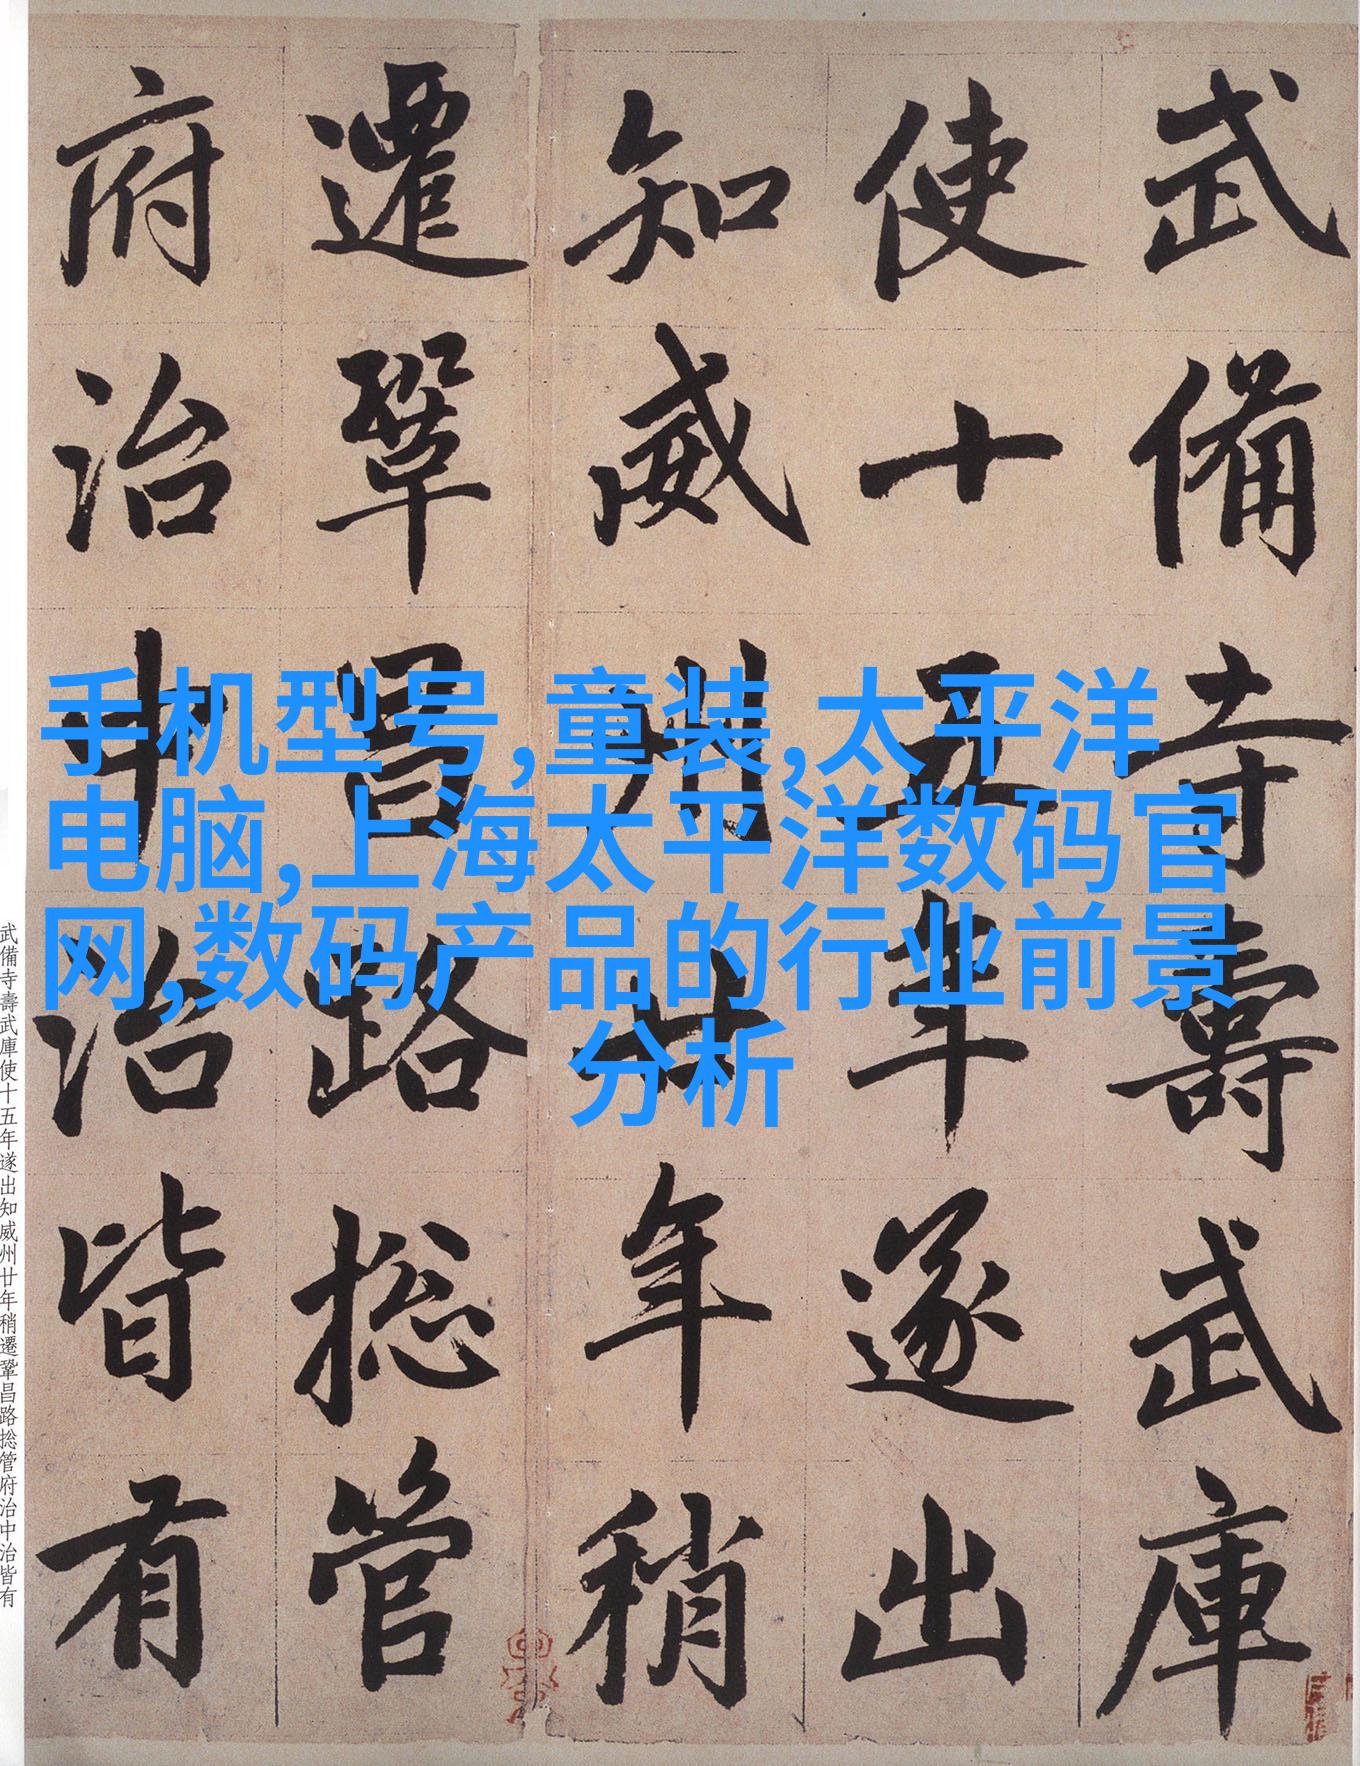 武備寺壽武庫
使十五年遂出
知威州廿年稍
遷鞏昌路揔管
府治中治皆有
手机型号,童装,太平洋
电脑,上海太平洋数码官
网,数码产品的行业前景
分析
武備寺壽武庫使十五年遂出知威州廿年稍遷鞏昌路揔管府治中治皆有